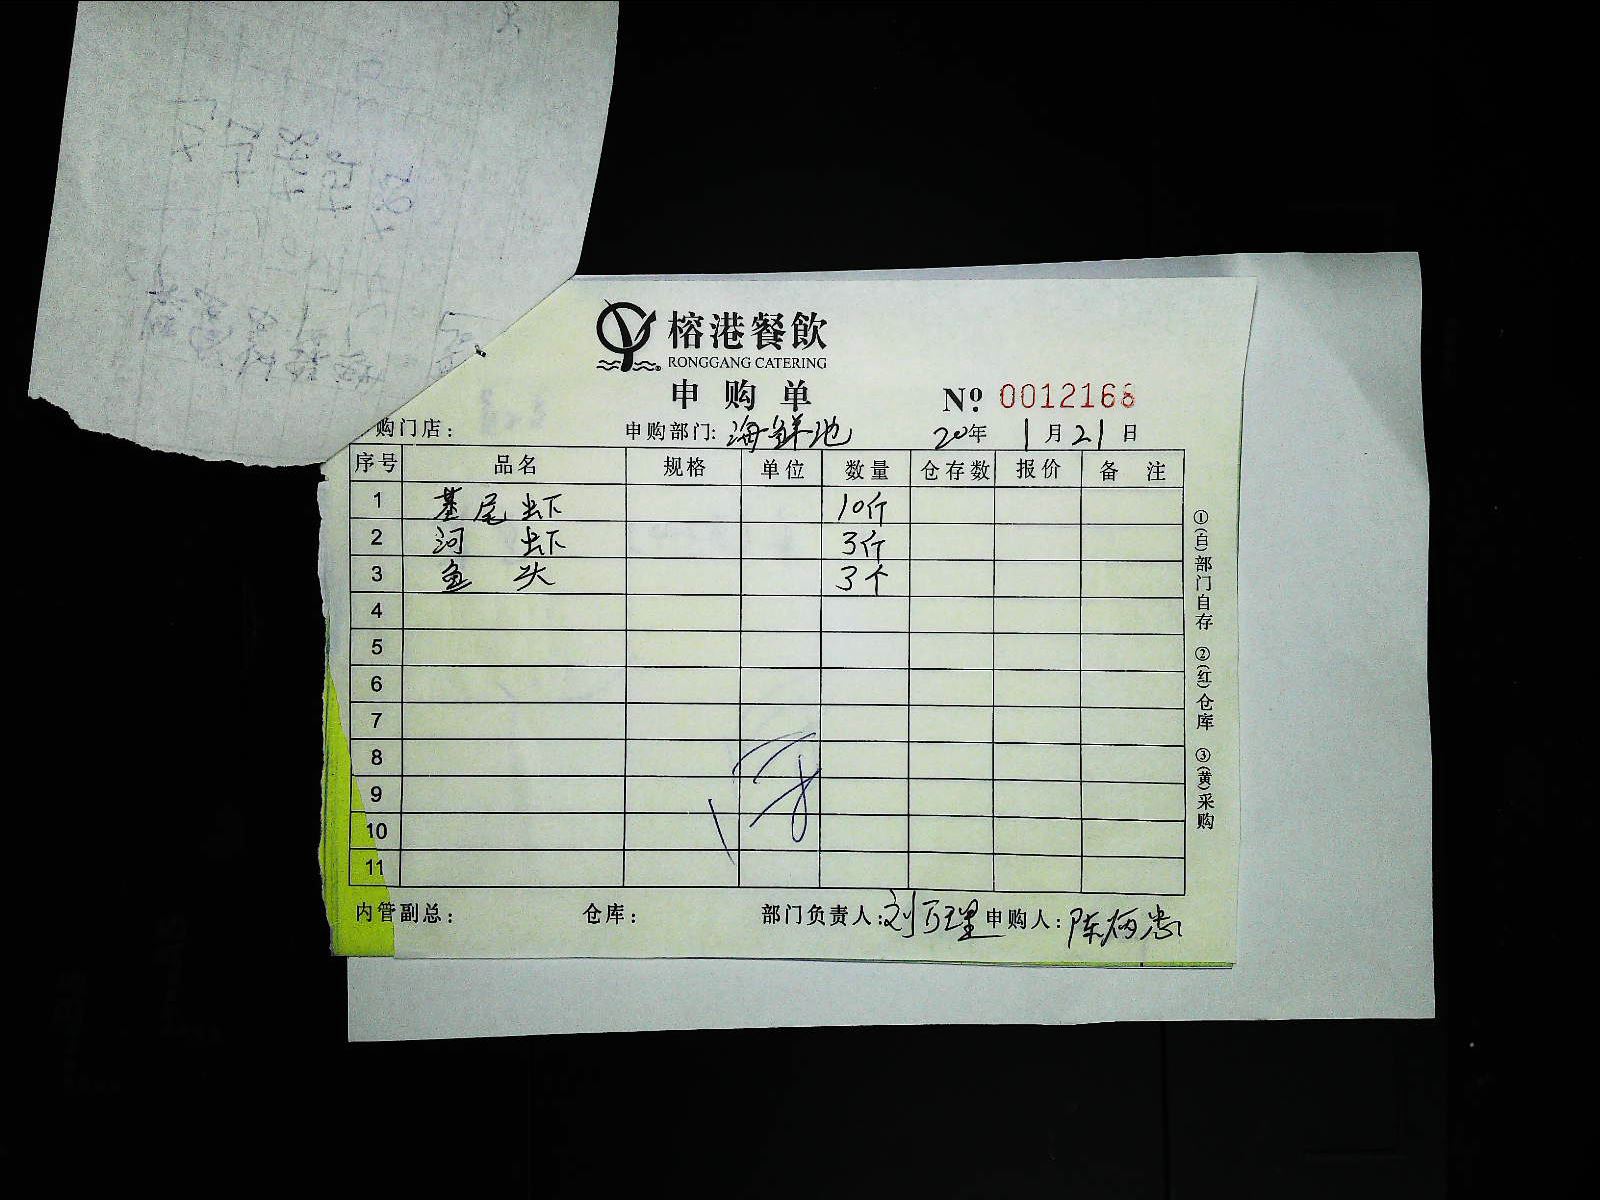 榕港餐飲
RONGGANG CATERING
申购单
Nº. 0012168
购门店： 申购部门: 海鲜池 20年 1月21日
序号 品名 规格 单位 数量 仓存数 报价 备注
1 基尾虾 10斤
2 河虾 3斤
3 鱼头 3个
4
5
6
7
8
9
10
11
内管副总： 仓库： 部门负责人：刘万理 申购人：陈炳忠
①(白)部门自存 ②(红)仓库 ③(黄)采购